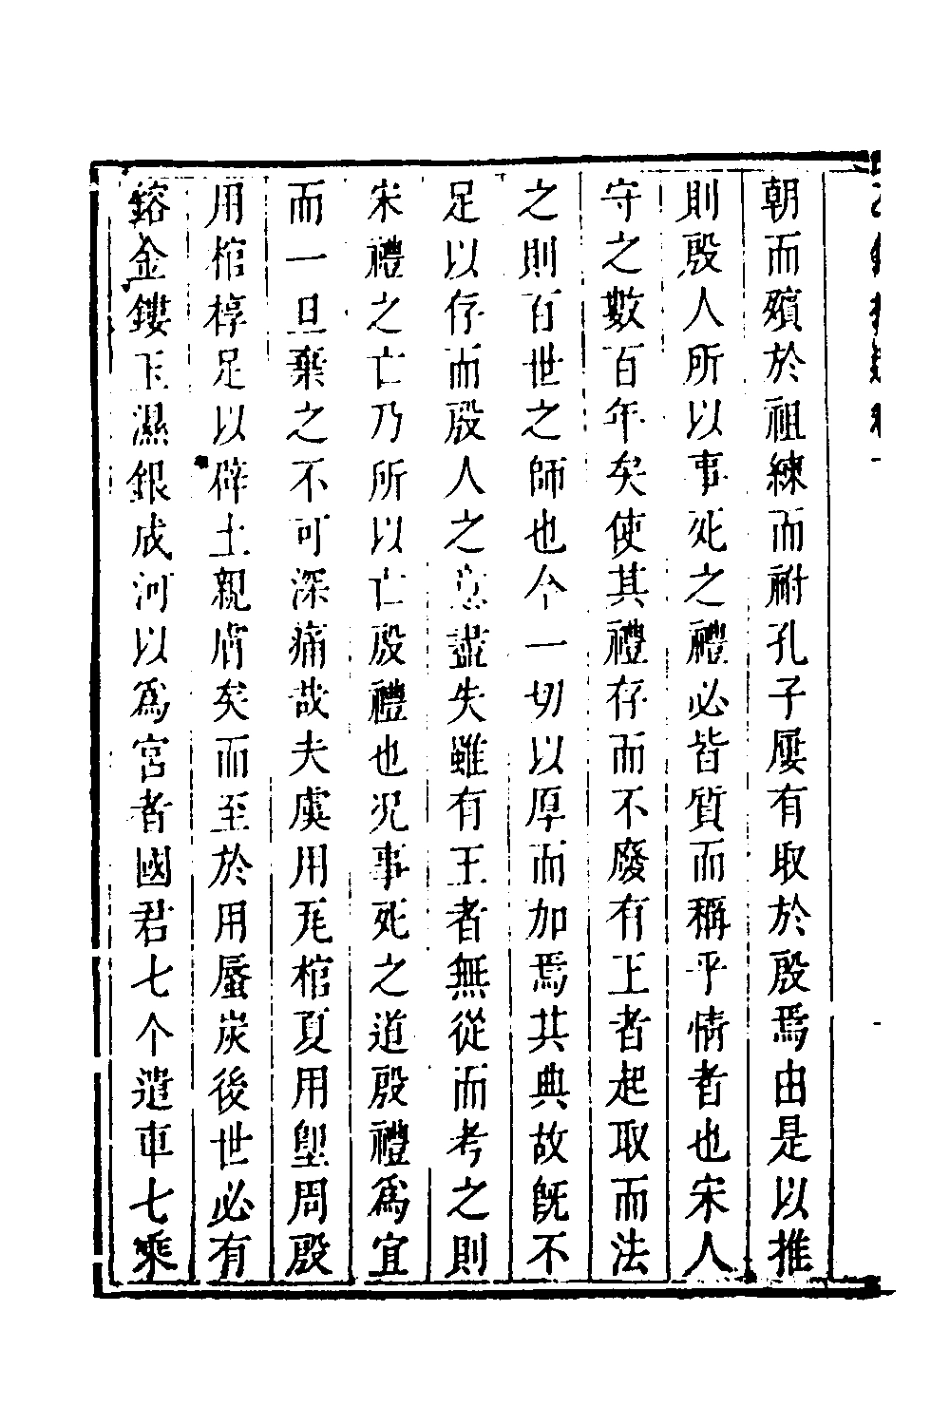 朝而殯於祖練而祔孔子屢有取於殷焉由是以推
則殷人所以事死之禮必皆質而稱乎情者也宋人
守之數百年矣使其禮存而不廢有王者起取而法
之則百世之師也今一切以厚而加焉其典故旣不
足以存而殷人之意盡失雖有王者無從而考之則
宋禮之亡乃所以亡殷禮也况事死之道殷禮爲宜
而一旦棄之不可深痛哉夫虞用瓦棺夏用堲周殷
用棺椁足以辟土親膚矣而至於用蜃炭後世必有
鎔金鏤玉濕銀成河以爲宮者國君七个遣車七乘